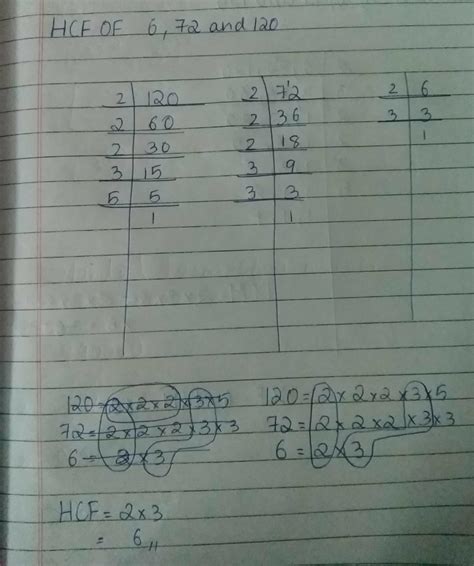 HCF OF 6, 72 and 120
2 | 120
2 | 60
2 | 30
3 | 15
5 | 5
1
2 | 72
2 | 36
2 | 18
3 | 9
3 | 3
1
2 | 6
3 | 3
1
120 = 2 × 2 × 2 × 3 × 5
72 = 2 × 2 × 2 × 3 × 3
6 = 2 × 3
120 = 2 × 2 × 2 × 3 × 5
72 = 2 × 2 × 2 × 3 × 3
6 = 2 × 3
HCF = 2 × 3
= 6,,